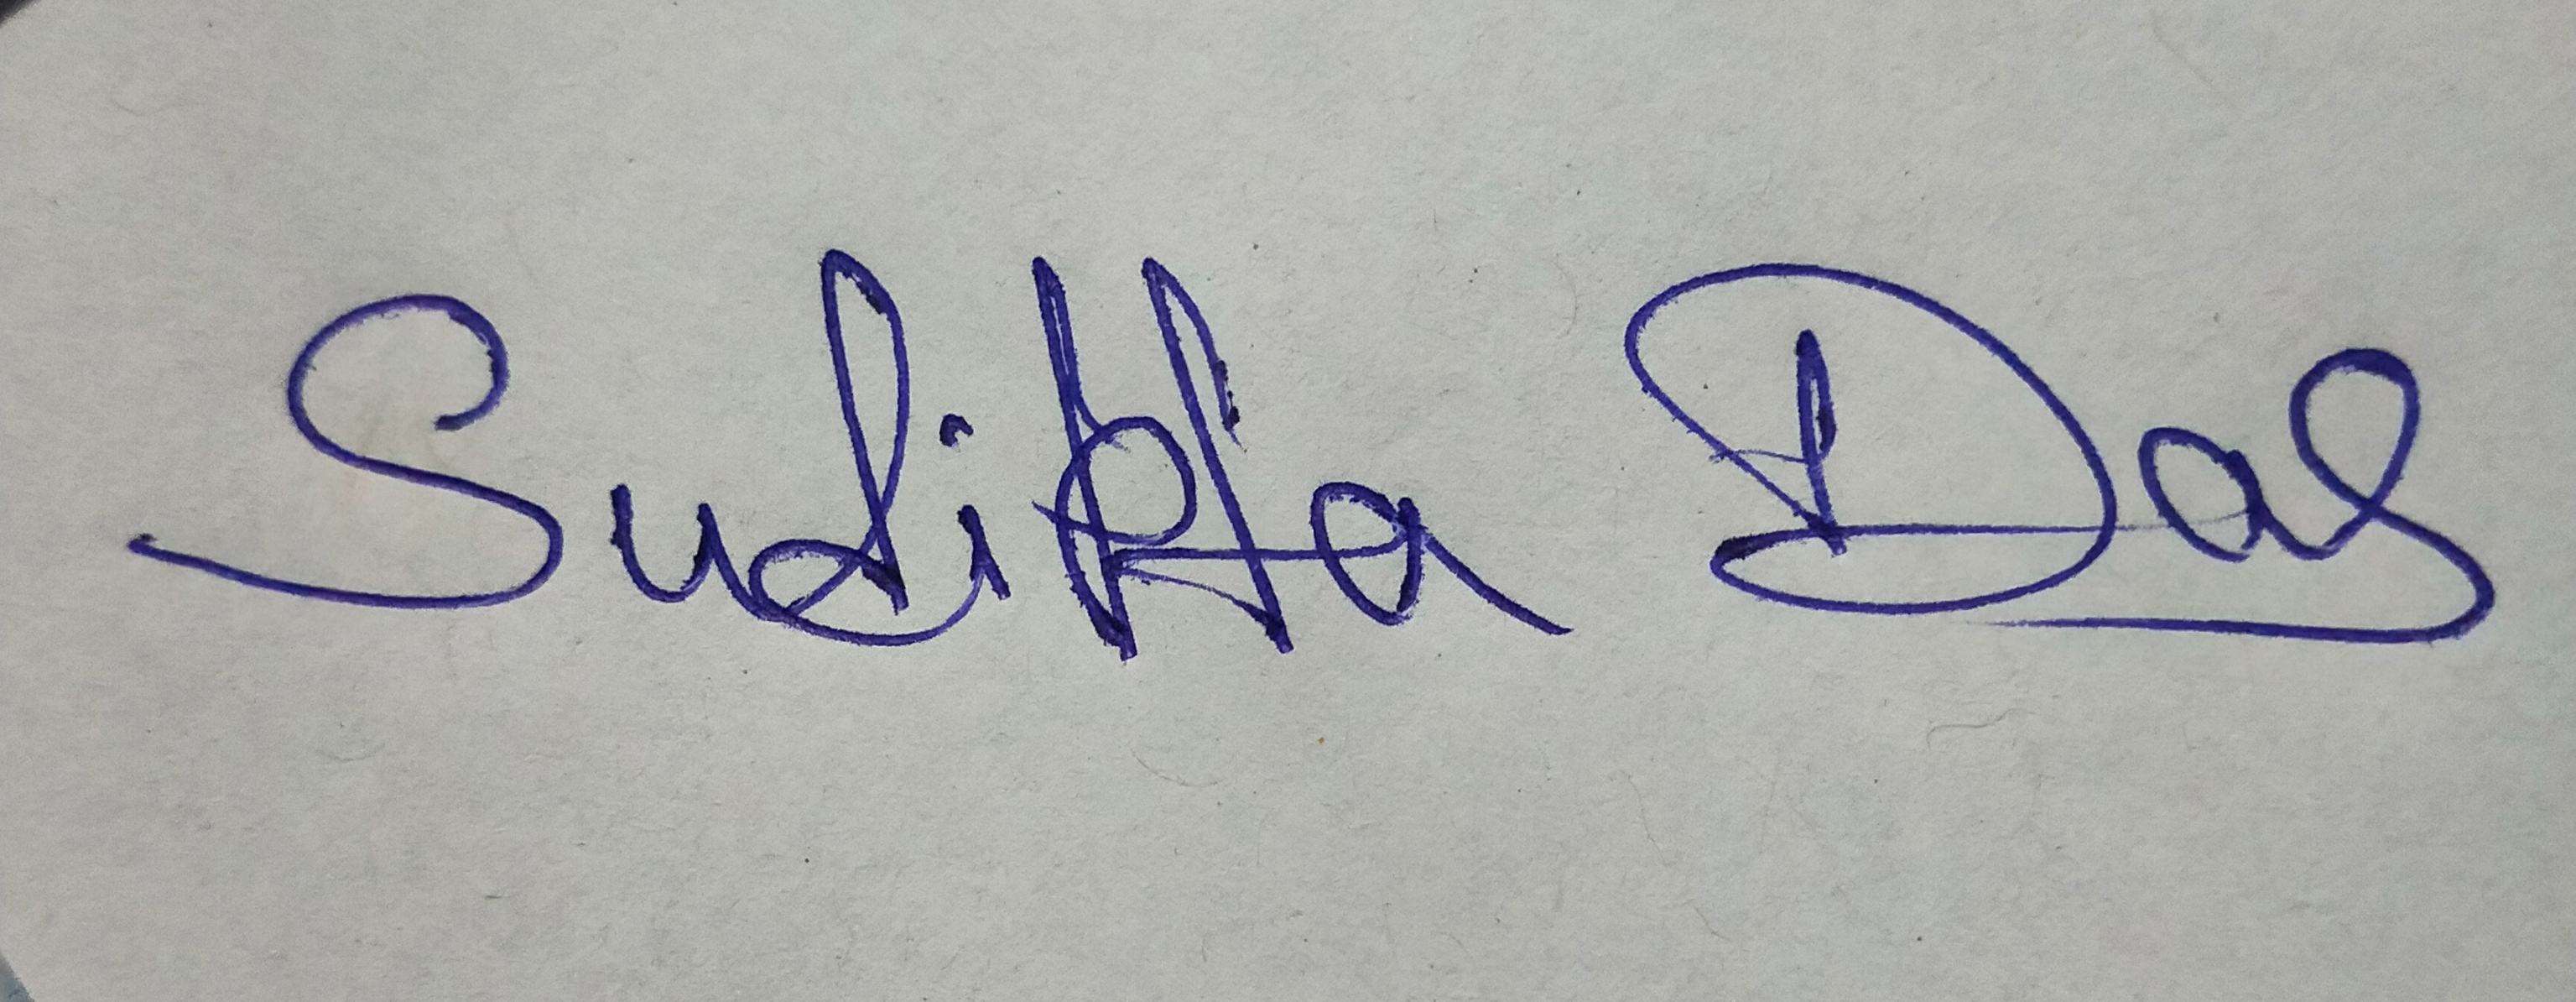 Sudipta Das